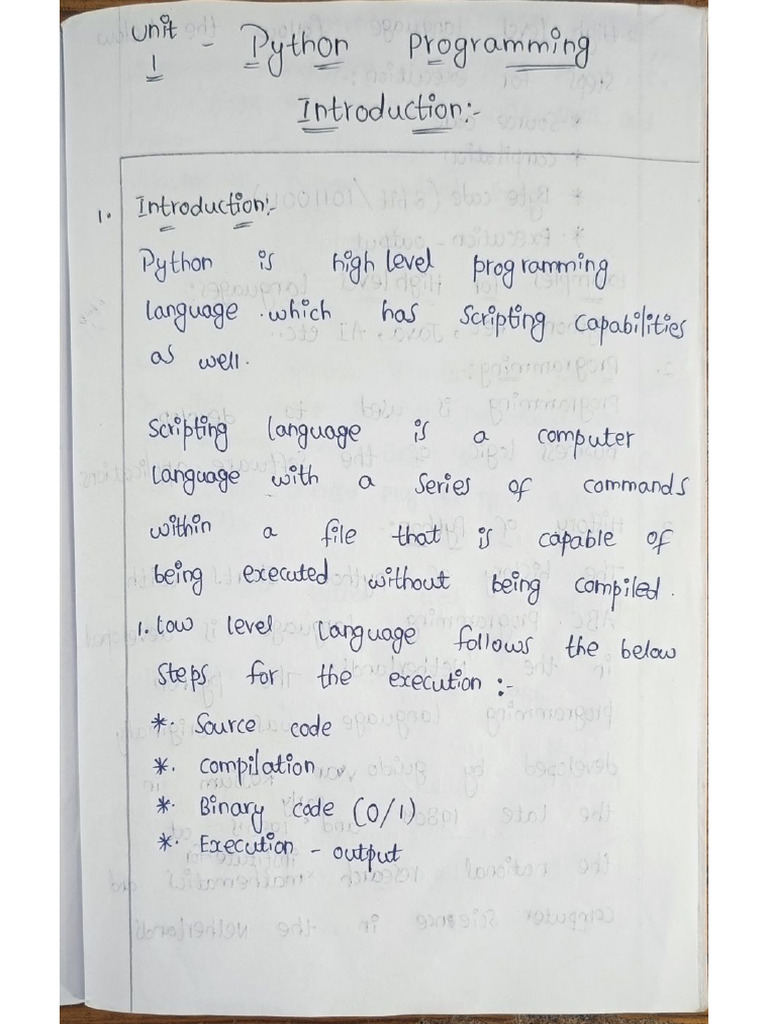 Unit 1 - Python Programming
Introduction:-
1. Introduction:-
Python is high level programming
language which has scripting capabilities
as well.
Scripting language is a computer
language with a series of commands
within a file that is capable of
being executed without being compiled.
1. Low level language follows the below
steps for the execution :-
*. Source code
*. Compilation
*. Binary code (0/1)
*. Execution - output